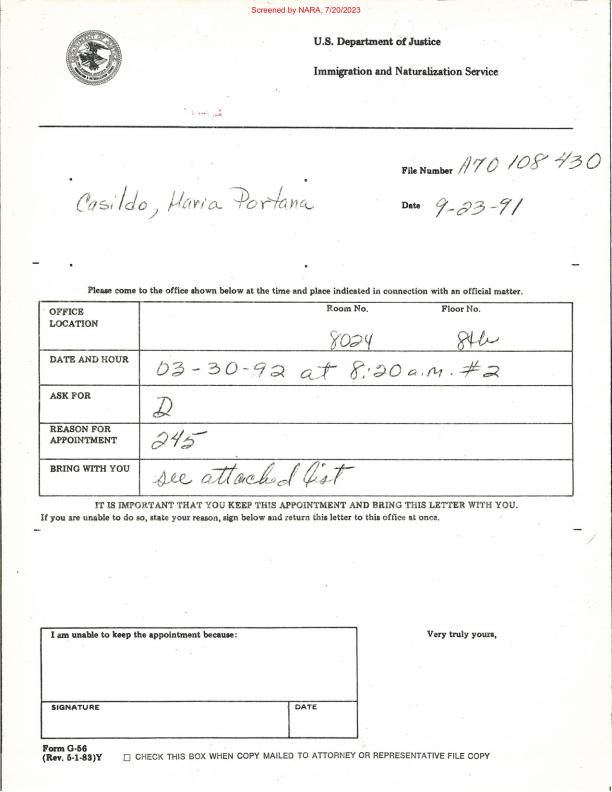 Screened by NARA, 7/20/2023
U.S. Department of Justice
Immigration and Naturalization Service
File Number A70 108 430
Casildo, Maria Portana
Date 9-23-91
Please come to the office shown below at the time and place indicated in connection with an official matter.
OFFICE LOCATION
Room No. Floor No.
8024 8th
DATE AND HOUR 03-30-92 at 8:20 a.m. #2
ASK FOR D
REASON FOR APPOINTMENT 245
BRING WITH YOU see attached list
IT IS IMPORTANT THAT YOU KEEP THIS APPOINTMENT AND BRING THIS LETTER WITH YOU.
If you are unable to do so, state your reason, sign below and return this letter to this office at once.
I am unable to keep the appointment because:
Very truly yours,
SIGNATURE DATE
Form G-56
(Rev. 5-1-83)Y
☐ CHECK THIS BOX WHEN COPY MAILED TO ATTORNEY OR REPRESENTATIVE FILE COPY